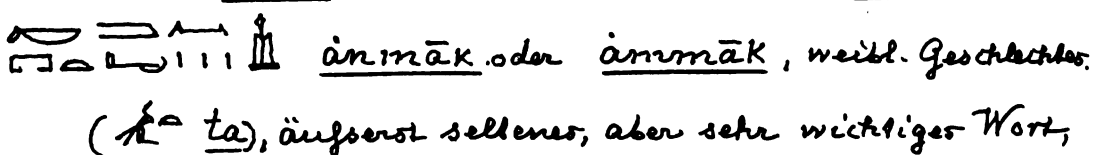 ȧnmāk oder ȧmmāk, weibl. Geschlechtes.
(ta), äufserst seltenes, aber sehr wichtiges Wort,